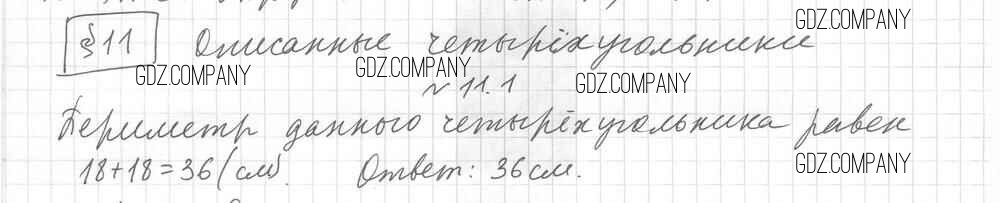 GDZ.COMPANY
§ 11 Описанные четырёхугольники
GDZ.COMPANY GDZ.COMPANY
№ 11.1 GDZ.COMPANY
Периметр данного четырёхугольника равен
18+18=36 (см). Ответ: 36 см.
GDZ.COMPANY